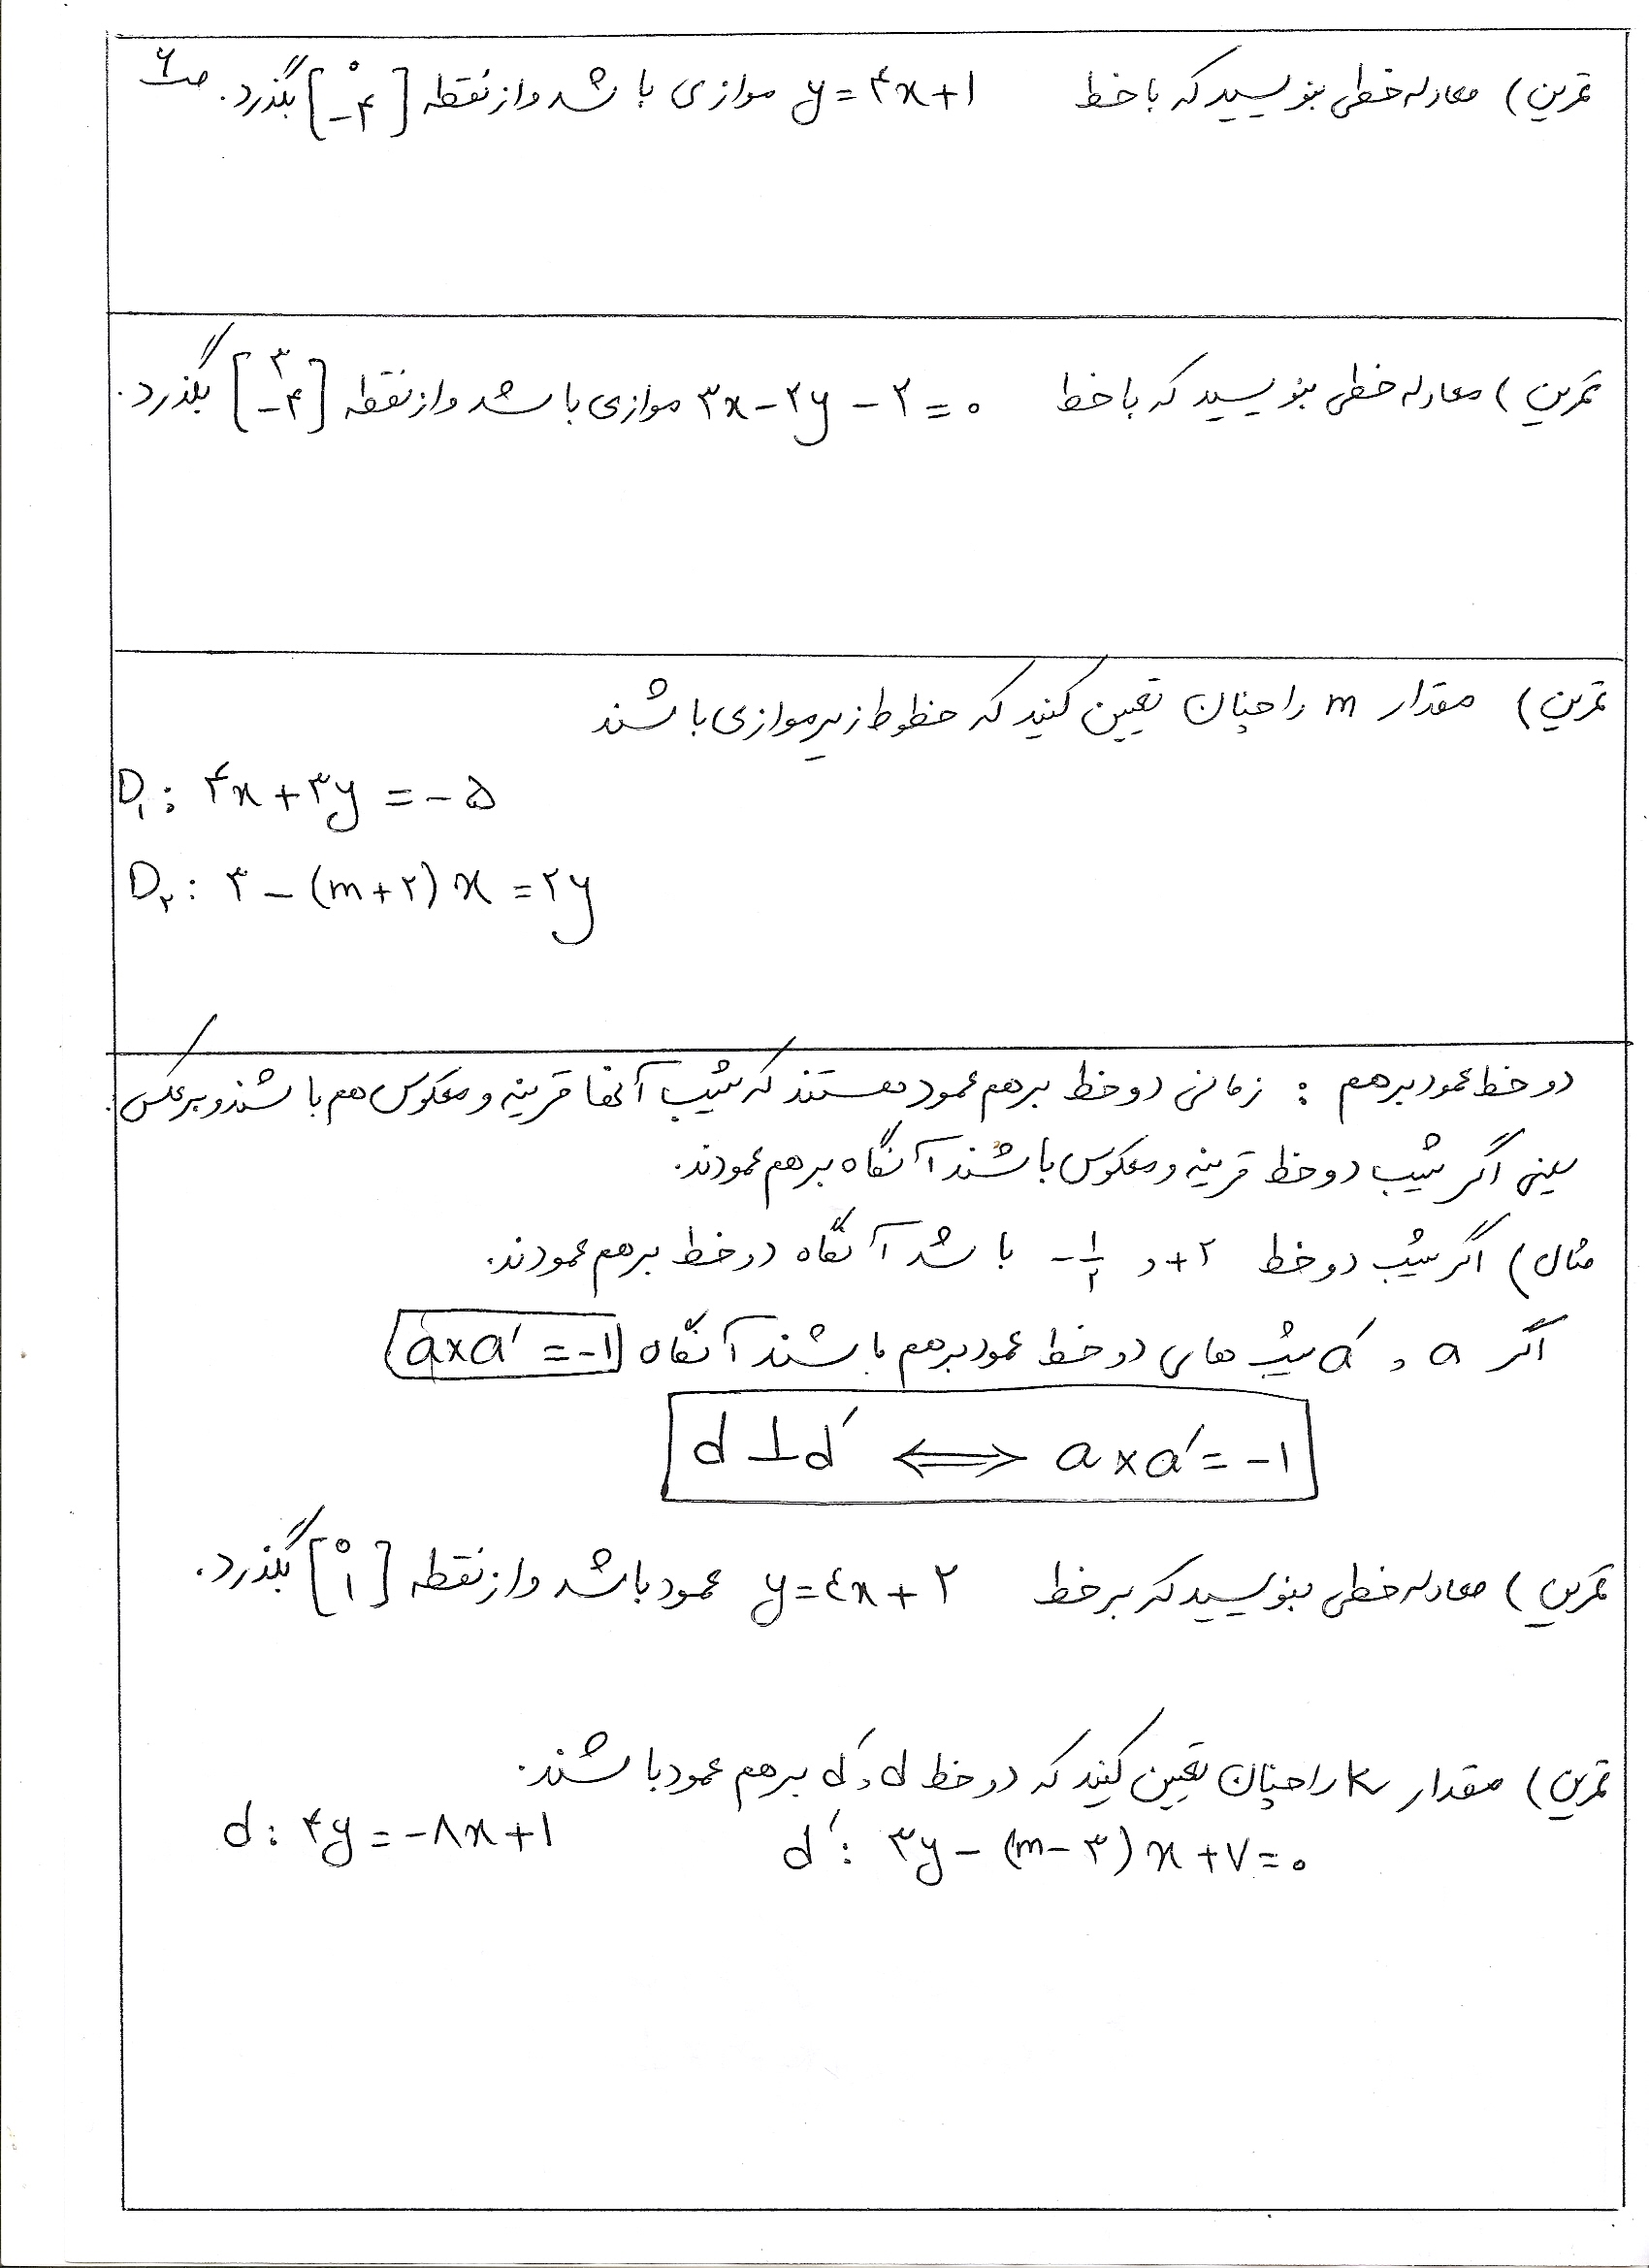 تمرین) معادله خطی بنویسید که با خط y = ۴x + ۱ موازی باشد و از نقطه [۰ -۴] بگذرد. ص۶
تمرین) معادله خطی بنویسید که با خط ۳x - ۲y - ۲ = ۰ موازی باشد و از نقطه [۳ -۴] بگذرد.
تمرین) مقدار m را چنان تعیین کنید که خطوط زیر موازی باشند
D۱: ۴x + ۳y = -۵
D۲: ۳ - (m+۲)x = ۲y
دو خط عمود برهم : زمانی دو خط برهم عمود هستند که شیب آنها قرینه و معکوس هم باشند و برعکس.
یعنی اگر شیب دو خط قرینه و معکوس باشند آنگاه برهم عمودند.
مثال) اگر شیب دو خط ۲+ و -۱/۲ باشد آنگاه دو خط برهم عمودند.
اگر a و a′ شیب های دو خط عمود برهم باشند آنگاه a×a′ = -۱
d ⊥ d′ ⟺ a×a′ = -۱
تمرین) معادله خطی بنویسید که بر خط y = ٤x + ۲ عمود باشد و از نقطه [۰ ۱] بگذرد.
تمرین) مقدار k را چنان تعیین کنید که دو خط d و d′ برهم عمود باشند.
d: ۴y = -۸x + ۱ d′: ۳y - (m-۳)x + ۷ = ۰